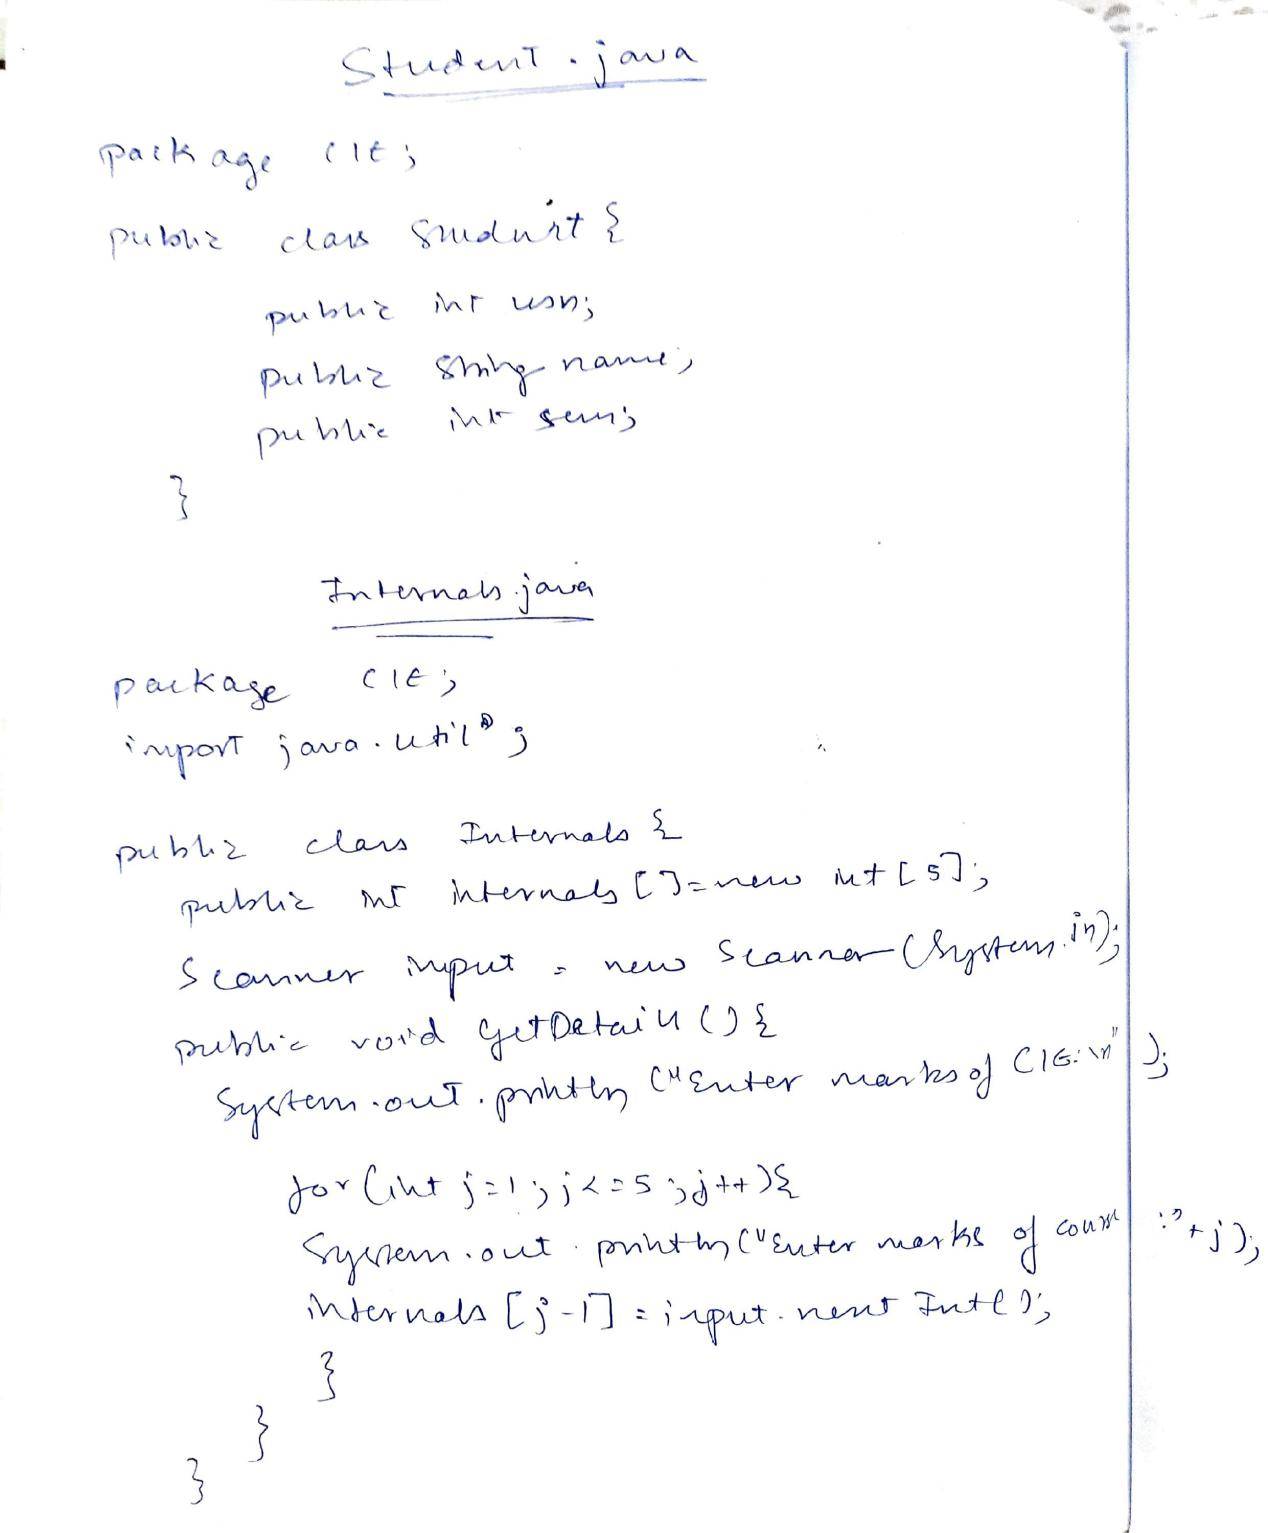 Student.java
package CIE;
public class Student {
public int usn;
public String name;
public int sem;
}
Internals.java
package CIE;
import java.util*;
public class Internals {
public int internals[]=new int[5];
Scanner input = new Scanner(System.in);
public void getDetails(){
System.out.println("Enter marks of CIE:\n");
for(int j=1;j<=5;j++){
System.out.println("Enter marks of course :"+j);
internals[j-1]=input.nextInt();
}
}
}